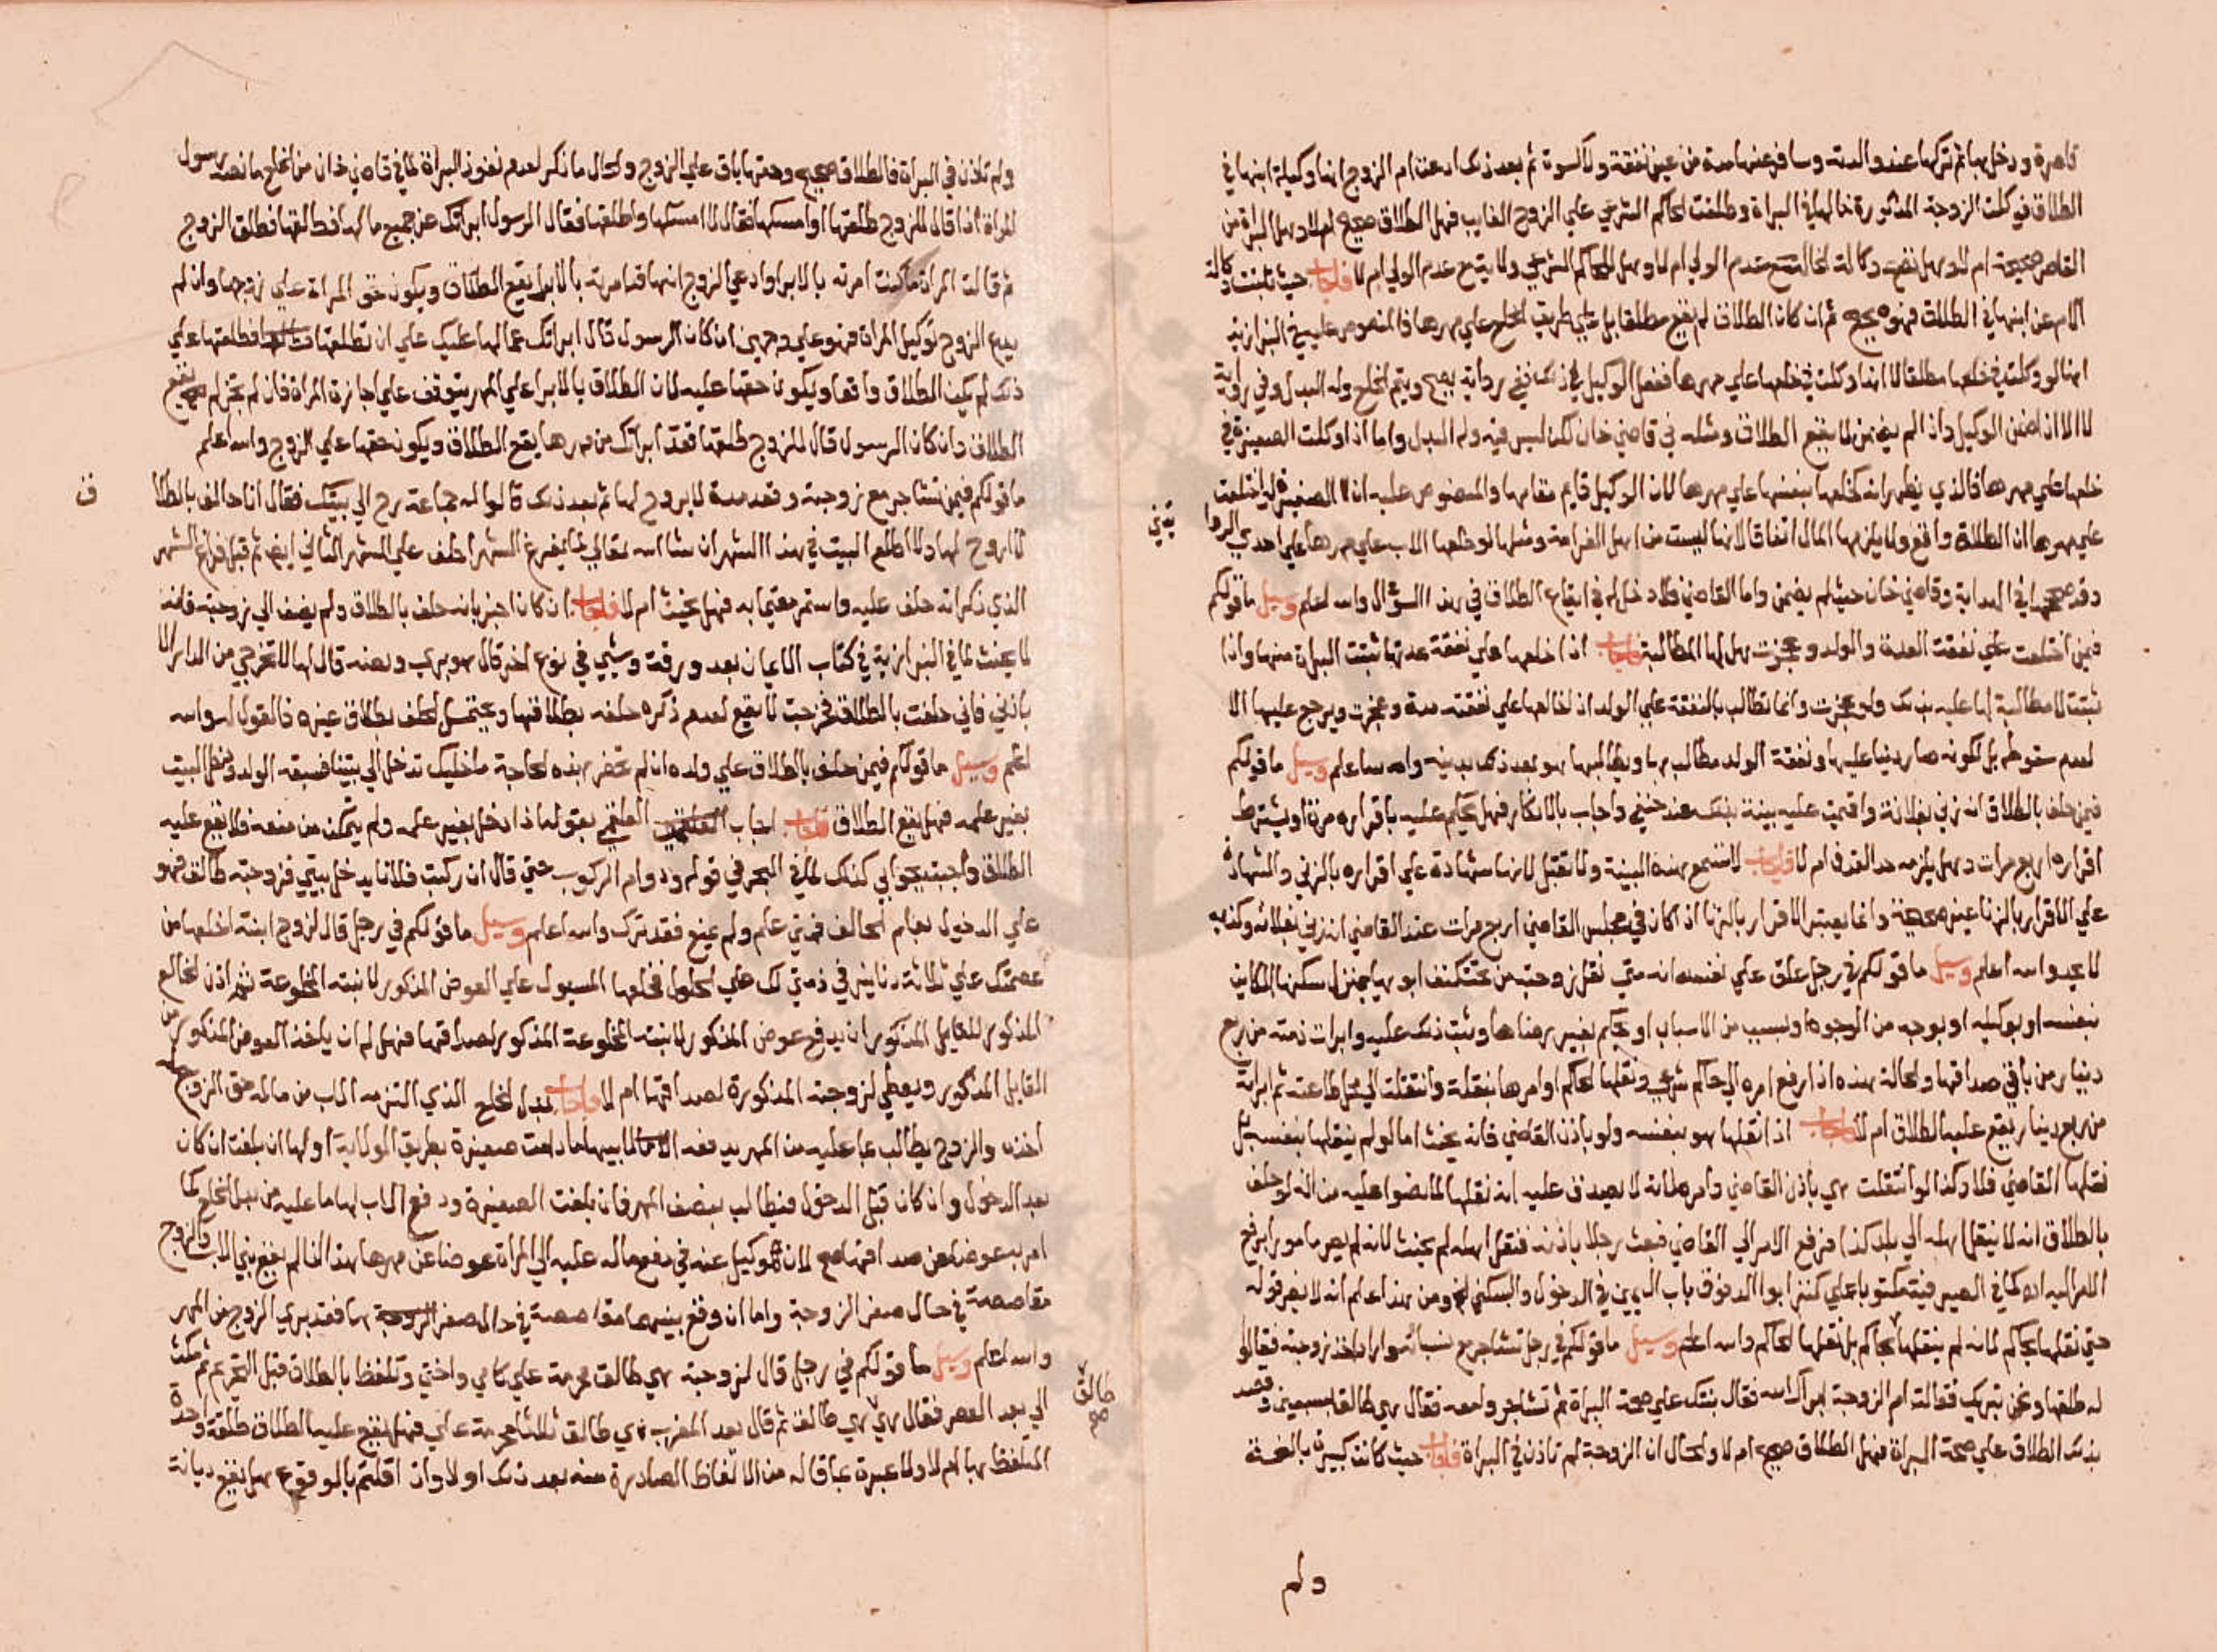 قاصرة ودخل بها ثم تركها عند والدته وسافر عنها مدة من غير نفقة ولا كسوة ثم بعد ذلك ادعت ام الزوج انها وكيلة ابنها في
الطلاق فوكلت الزوجة المذكورة خالها في البراة وطلقت لحاكم الشرعي علي الزوج الغايب فهل الطلاق صحيح ام لا وهل البراة من
القاصر صحيحة ام لا وهل تصح وكالة الخال مع عدم الولي ام لا وهل الحاكم الشرعي ولا يتيح عدم الولي ام لا فاجاب حيث ثبتت وكالة
الام عن ابنها في الطلاق فهو صحيح ثم ان كان الطلاق لم يقع مطلقا بل علي طريق الخلع علي مهرها فالمنصوص عليه في البزازية
انها لو وكلت في خلعها مطلقا لا انها وكلت في خلعها علي مهرها ففعل الوكيل ذلك ففي رواية يصح ويتم الخلع وله البدل وفي رواية
لا الا اذا ضمن الوكيل واذا لم يضمن لا يقع الطلاق ومثله في قاضي خان لكن ليس فيه وله البدل واما اذا وكلت الصغيرة في
خلعها علي مهرها فالذي يظهر انه كخلعها بنفسها علي مهرها لان الوكيل قايم مقامها والمنصوص عليه ان الصغيرة لو اختلعت
علي مهرها ان الطلاق واقع ولا يلزمها المال اتفاقا لانها ليست من اهل الغرامة ومثلها لو خلعها الاب علي مهرها علي احدي الروا
يتين
وقد صححها في الهداية وقاضي خان حيث لم يضمن واما القاضي فلا دخل له في ايقاع الطلاق في هذا السؤال والله اعلم وسيل ما قولكم
فيمن اختلعت علي نفقة العدة والولد وعجزت هل لها المطالبة فاجاب اذا خلعها علي نفقة عدتها ثبتت البراة منها واذا
ثبتت لا مطالبة لها عليه بذلك ولو عجزت وانما تطالب بالنفقة علي الولد اذا خالعها علي نفقته مدة وعجزت ويرجع عليها الا
لعدم سقوطه بل لكونه صار دينا عليها ونفقة الولد مطالب بها ويطالبها هو بعد ذلك بدينه والله اعلم وسيل ما قولكم
فيمن حلف بالطلاق انه زني بفلانة واقيمت عليه بينة بذلك عند حنفي واجاب بالانكار فهل يحكم عليه باقراره مرة او يشترط
اقراره اربع مرات وهل يلزمه حد القذف ام لا فاجاب لا تسمع هذه البينة ولا تقبل لانها شهادة علي اقراره بالزني والشهادة
علي الاقرار بالزنا غير صحيحة وانما يعتبر الاقرار بالزنا اذا كان في مجلس القاضي اربع مرات عند القاضي انه زني بفلانة وكذبه
لا يحد والله اعلم وسيل ما قولكم في رجل علق علي نفسه انه متي نقل زوجته من تحت كنف ابويها بمنزل سكنها الكاين
بنفسه او بوكيله او بوجه من الوجوه او بسبب من الاسباب او بحكم بغير رضاها وثبت ذلك عليه وابرات ذمته من ربع
دينار من باقي صداقها والحالة هذه اذا رفع امره الي حاكم شرعي ونقلها لحاكم او امرها بنقلة وانتقلت الي محل طاعته ثم ابراته
من ربع دينار يقع عليه الطلاق ام لا فاجاب اذا نقلها هو بنفسه ولو باذن القاضي فانه يحنث اما لو لم ينقلها بنفسه بل
نقلها القاضي فلا وكذا لو انتقلت هي باذن القاضي وامره لانه لا يصدق عليه انه نقلها لما نصوا عليه من انه لو حلف
بالطلاق انه لا ينقل اهله الي بلد كذا فرفع الامر الي القاضي فبعث رجلا باذنه فنقل اهله لم يحنث لانه لم يصر مامورا برفع
الامر اليه كما في الصيرفية مكتوبا علي كنز ابو الدفوف باب اليمين في الدخول والسكني ومن هذا اعلم انه لا يضر قوله
حتي نقلها بحاكم لانه لم ينقلها بحاكم بل نقلها الحاكم والله اعلم وسيل ما قولكم في رجل تشاجر مع نسبائه وارادوا اخذ زوجته فقالوا
له طلقها ونحن نبريك فقالت ام الزوجة ابراك الله فقال بنتك علي صحة البراة ثم تشاجر وامعه فقال هي طالقة بسبعين وقصد
بذلك الطلاق علي صحة البراة فهل الطلاق صحيح ام لا والحال ان الزوجة لم تاذن في البراة فاجاب حيث كانت كبيرة بالغة
ولم
ولم تاذن في البراة فالطلاق صحيح وحقها باق علي الزوج والحال ما ذكر لعدم نفوذ البراة لما في قاضي خان من الخلع ما نصه رسول
المراة اذا قال للزوج طلقها او امسكها فقال لا امسكها واطلقها فقال الرسول ابراتك عن جميع ما لها فطلقها فطلق الزوج
ثم قالت المراة ما كنت امرته بالابرا وادعي الزوج انها قد امرته بالابرا يقع الطلاق ويكون حق المراة علي زوجها وان لم
يدع الزوج توكيل المراة فهو علي وجهين ان كان الرسول قال ابراتك عما لها عليك علي ان تطلقها فطلقها علي
ذلك لم يكن الطلاق واقعا ويكون حقها عليه لان الطلاق بالابرا علي المهر يتوقف علي اجازة المراة فان لم تجز لم يقع
الطلاق وان كان الرسول قال للزوج طلقها فقد ابراتك من مهرها يقع الطلاق ويكون حقها علي الزوج والله اعلم
ف
ما قولكم فيمن تشاجر مع زوجته وقعد مدة لا يروح لها ثم بعد ذلك قالوا له جماعة رح الي بيتك فقال انا حالف بالطلا
لا اروح لها ولا اطلع البيت في هذا الشهر ان شا الله تعالي لما يفرغ الشهر احلف علي الشهر الثاني ايضا ثم قبل فراغ الشهر
الذي ذكر انه حلف عليه واستمر مقيما به فهل يحنث ام لا فاجاب ان كان اخبر بانه حلف بالطلاق ولم يضف الي زوجته فانه
لا يحنث لما في البزازية في كتاب الايمان بعد ورقة وشي في نوع اخر قال هو يهرب وبعضه قال لها لا تخرجي من الدار الا
باذني فاني حلفت بالطلاق فخرجت لا يقع لعدم ذكره حلفه بطلاقها ويحتمل الحلف بطلاق غيره فالقول له والله
اعلم وسيل ما قولكم فيمن حلف بالطلاق علي ولده ان لم تحضر بهذه الحاجة ما خليك تدخل الي بيتنا فسبقه الولد ودخل البيت
بغير علمه فهل يقع الطلاق فاجاب اجاب العلقمي بقوله اذا دخل بغير علمه ولم يتمكن من منعه فلا يقع عليه
الطلاق واجبت بجوابي كذلك لما في البحر في قوله ودوام الركوب حتي قال ان ركبت فلانا يدخل بيتي فزوجته طالق فهو
علي الدخول بعلم الحالف فمتي علم ولم يمنع فقد ترك والله اعلم وسيل ما قولكم في رجل قال لزوج ابنته اخلعها من
عصمتك علي ثلاثة دنانير في ذمتي لك علي الحلول فخلعها المسيول علي العوض المذكور لابنته المخلوعة ثم اذن الخالع
المذكور للقايل المذكور ان يدفع عوض المذكور لابنته المخلوعة المذكور لصداقها فهل له ان ياخذ العوض المذكور من
القايل المذكور ويعطي لزوجته المذكورة لصداقها ام لا فاجاب بدل الخلع الذي التزمه الاب من ماله حق الزوج له
اخذه والزوج يطالب بما عليه من المهر يدفعه لابيها ما دامت صغيرة بطريق الولاية او لها ان بلغت ان كان
بعد الدخول وان كان قبل الدخول فيطالب بنصف المهر فان بلغت الصغيرة ودفع الاب لها ما عليه من بدل الخلع كما
امر به عوضا عن صداقها صح لانه وكيل عنه في دفع ماله عليه الي المراة عوضا عن مهرها هذا اذا لم يقع بين الاب والزوج
مقاصصة في حال صغر الزوجة واما ان وقع بينهما مقاصصة في حال صغر الزوجة بها فقد بري الزوج من المهر
والله اعلم وسيل ما قولكم في رجل قال لزوجته هي طالق محرمة علي كامي واختي وتلفظ بالطلاق قبل التحريم ثم مكث
الي بعد العصر فقال هي هي طالق ثم قال بعد المغرب هي طالق ثلاثا محرمة علي فهل يقع عليه الطلاق طلقة واحدة
طالق صح
المتلفظ بها ام لا ولا عبرة بما قاله من الالفاظ الصادرة منه بعد ذلك او لا وان اقلتم بالوقوع هل يقع ديانة